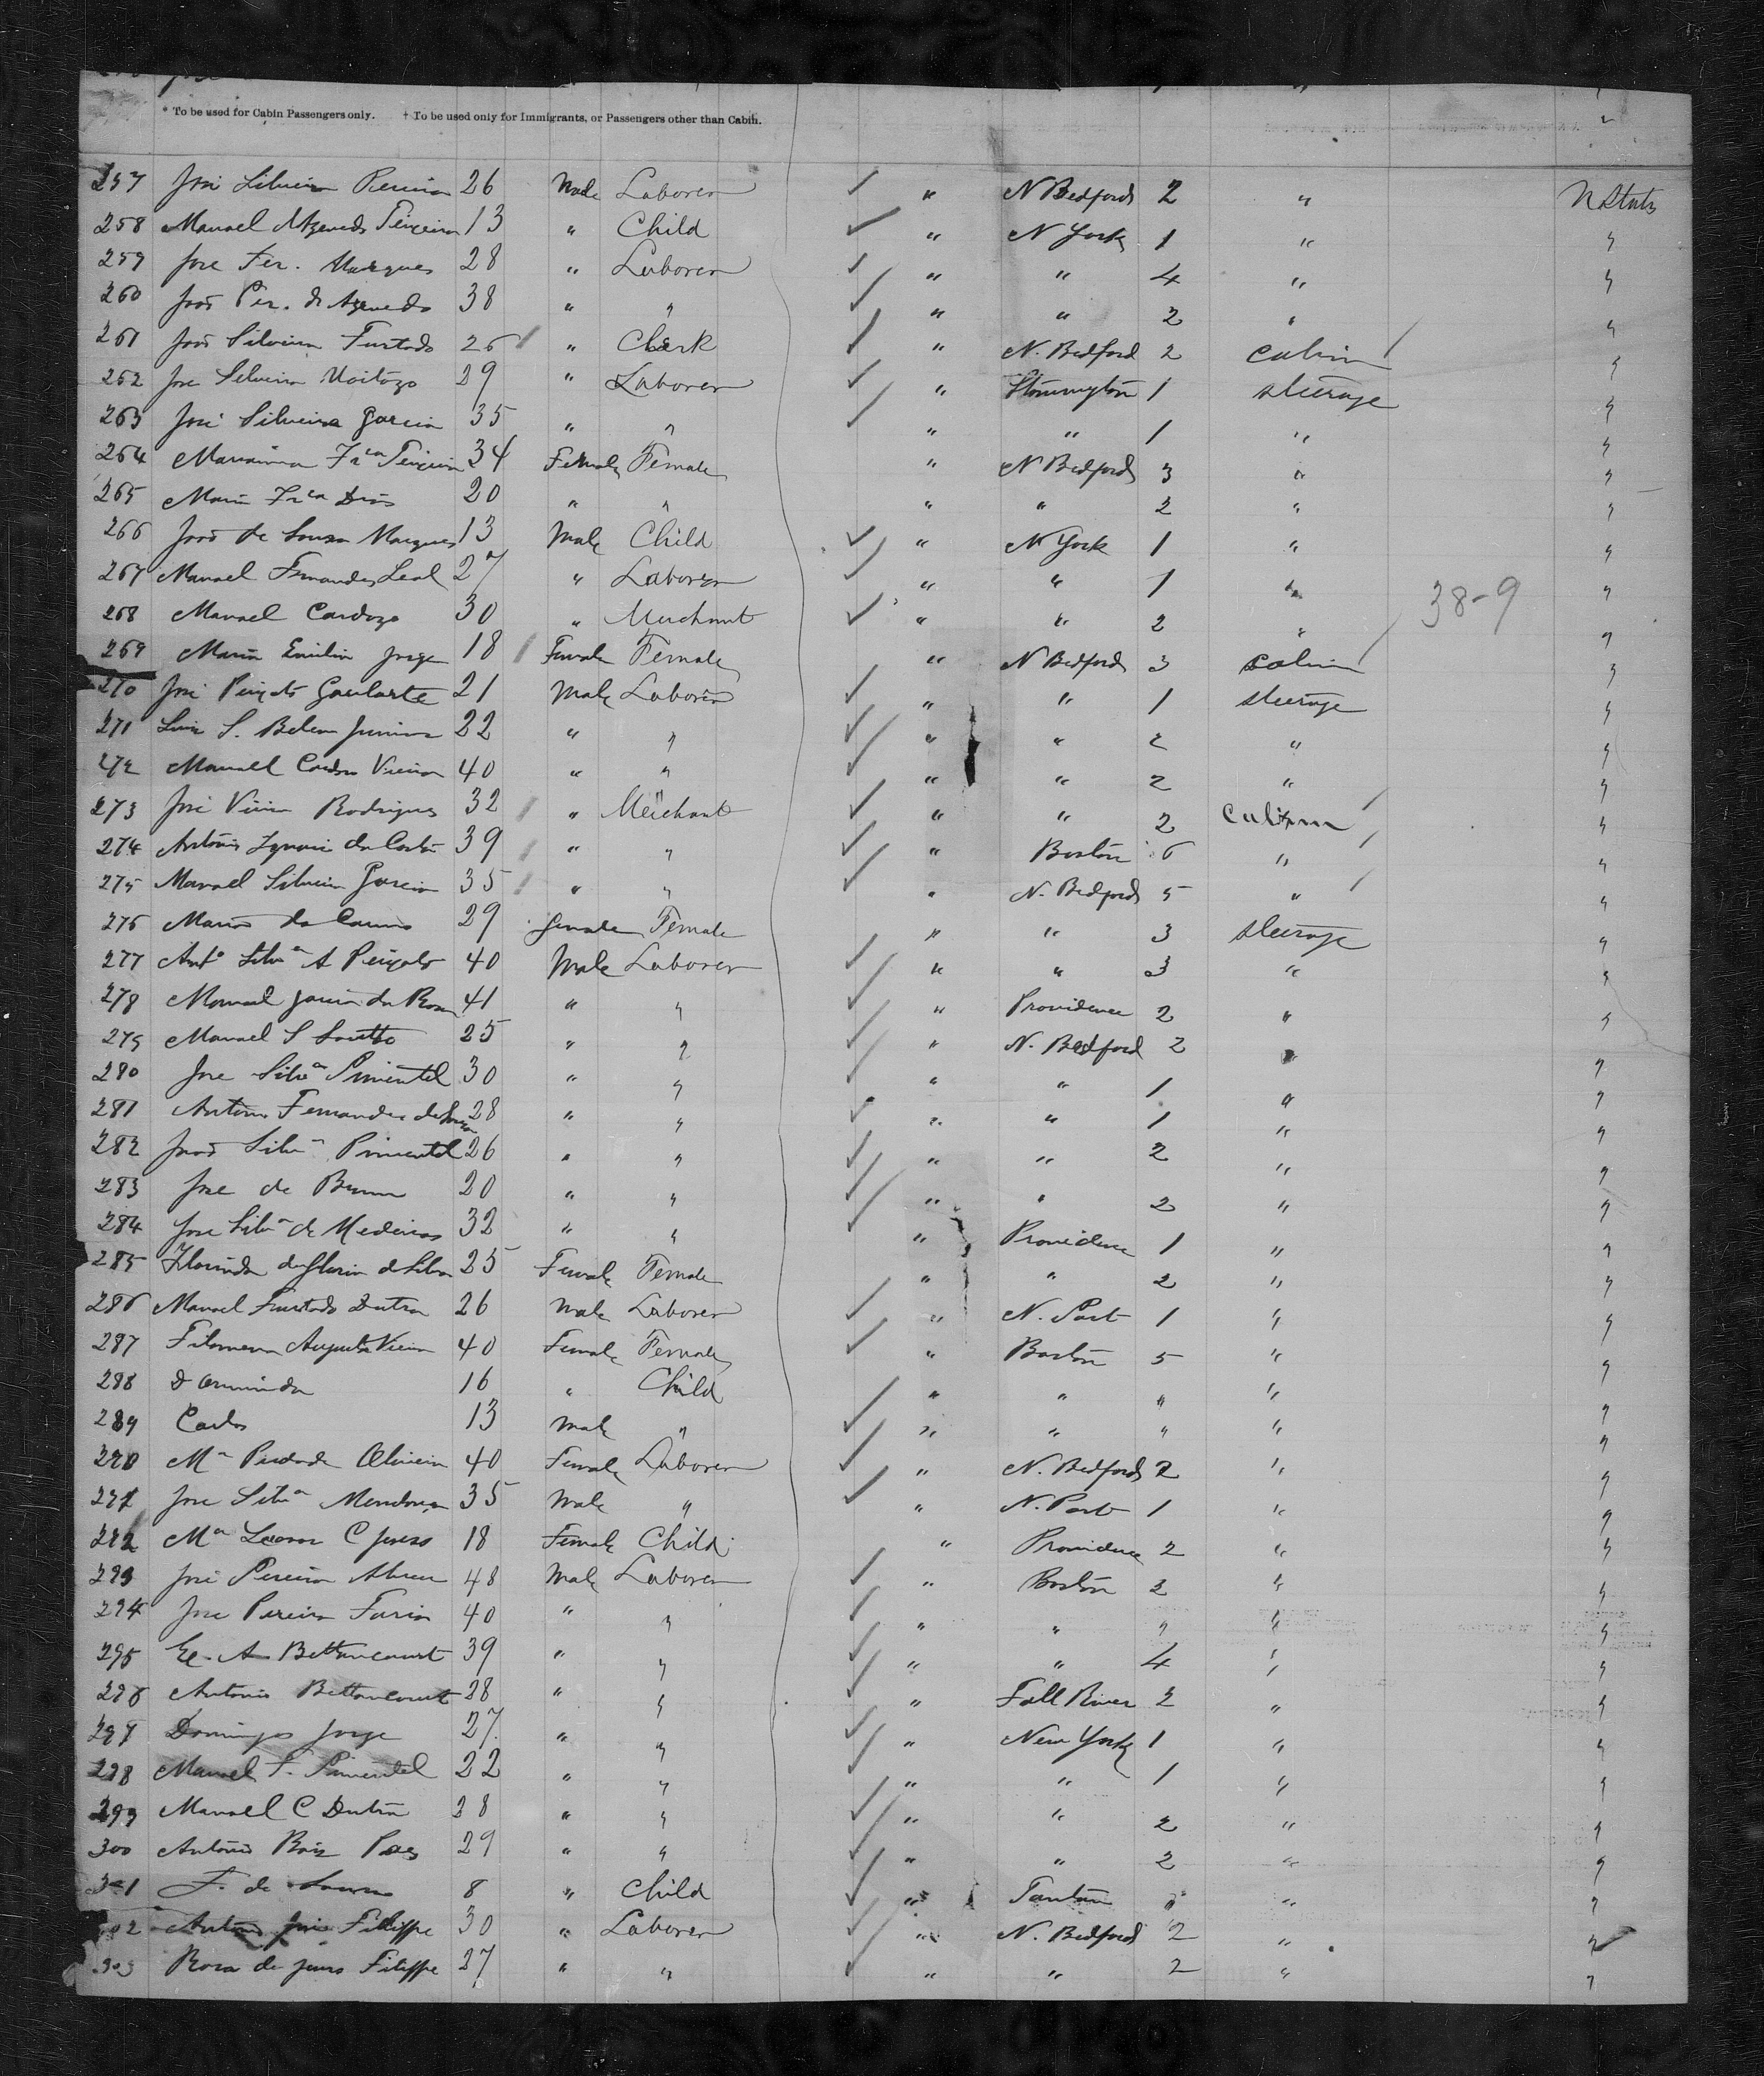 * To be used for Cabin Passengers only. † To be used only for Immigrants, or Passengers other than Cabin.
257 José Silveira Pereira 26 Male Laborer ✓ " N Bedford 2 " U States
258 Manoel Azevedo Teixeira 13 " Child ✓ " N York 1 " "
259 Jose Fer. Marques 28 " Laborer ✓ " " 4 " "
260 João Per. de Azevedo 38 " " ✓ " " 2 " "
261 João Silveira Furtado 26 " Clerk ✓ " N. Bedford 2 Cabin "
262 Jose Silveira 29 " Laborer ✓ " Stonington 1 steerage "
263 José Silveira Garcia 35 " " ✓ " " 1 " "
264 Marianna Frca Teixeira 34 Female Female " N Bedford 3 " "
265 Maria Frca Dias 20 " " " " 2 " "
266 João de Souza Marques 13 Male Child ✓ " N York 1 " "
267 Manoel Fernandes Leal 27 " Laborer ✓ " " 1 " "
38-9
268 Manoel Cardozo 30 " Merchant ✓ " " 2 " "
269 Maria Emilia Jorge 18 Female Female " N Bedford 3 Cabin "
270 José Peixoto Goularte 21 Male Laborer ✓ " " 1 steerage "
271 Luiz S. Belem Junior 22 " " ✓ " " 2 " "
272 Manoel Cardoso Vieira 40 " " ✓ " " 2 " "
273 José Vieira Rodrigues 32 " Merchant ✓ " " 2 Cabin "
274 Antonio Ignacio da Costa 39 " " ✓ " Boston 6 " "
275 Manoel Silveira Garcia 35 " " ✓ " N. Bedford 5 " "
276 Maria do Carmo 29 female Female " " 3 steerage "
277 Anto Silva A Peixoto 40 Male Laborer ✓ " " 3 " "
278 Manoel Garcia da Rosa 41 " " ✓ " Providence 2 " "
279 Manoel S 25 " " ✓ " N. Bedford 2 " "
280 Jose Silva Pimentel 30 " " ✓ " " 1 " "
281 Antonio Fernandes de Souza 28 " " ✓ " " 1 " "
282 João Silva Pimentel 26 " " ✓ " " 2 " "
283 Jose de Brum 20 " " ✓ " " 2 " "
284 Jose Silva de Medeiros 32 " " ✓ " Providence 1 " "
285 Florinda da Gloria de Silva 25 Female Female " " 2 " "
286 Manoel Furtado Dutra 26 Male Laborer ✓ " N. Port 1 " "
287 Filomena Augusta Vieira 40 Female Female ✓ " Boston 5 " "
288 16 " Child " " " " "
289 Carlos 13 Male " ✓ " " " " "
290 Ma Piedade Oliveira 40 Female Laborer ✓ " N. Bedford 2 " "
291 Jose Silva Mendonça 35 Male " ✓ " N. Port 1 " "
292 Ma Leonor C 18 Female Child " Providence 2 " "
293 José Pereira Abreu 48 Male Laborer ✓ " Boston 2 " "
294 Jose Pereira Faria 40 " " ✓ " " " " "
295 A Bettencourt 39 " " ✓ " " 4 " "
296 Antonio Bettencourt 28 " " ✓ " Fall River 2 " "
297 Domingos Jorge 27 " " ✓ " New York 1 " "
298 Manoel F. Pimentel 22 " " ✓ " " 1 " "
299 Manoel C Dutra 28 " " ✓ " " 2 " "
300 Antonio 29 " " ✓ " " 2 " "
301 F. de 8 " Child ✓ " Taunton " "
302 Antonio José Filippe 30 " Laborer ✓ " N. Bedford 2 " "
303 Rosa de Jesus Filippe 27 " " ✓ " " 2 " "